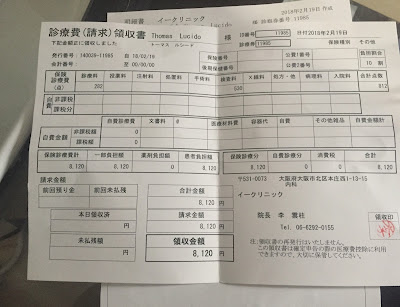 イークリニック
2018年2月19日 作成
11985
診療費(請求)領収書 Thomas Lucido 様
トーマス ルシード
ID番号 11985 日付2018年2月19日
下記金額正に領収しました
診療番号 11985 保険種別 その他
発行番号: 140039-11985 自 18/02/19
公費1番号 負担割合
会計番号: 至 00/00/00
公費2番号 10 割
保険診療費(点) 診療料 指導料 投薬料 注射料 処置料 手術料 検査 X線料 処方 他 病理料 入院料 合計点数
282 530 812
自費 非課税
課税
自費金額 自費診療費 文書料 # 医療材料費 容器代 自費 その他雑品 自費合計
非課税額 0
課税額 0
保険診療費計 一部負担額 薬剤負担額 患者負担額 保険診療分 自費診療分 消費税 合計
8,120 8,120 0 8,120 8,120 0 0 8,120
請求金額
前回預り金 前回未払残 合計金額
円 8,120 円
本日領収済 請求金額
円 8,120 円
未払残額 領収金額
円 8,120 円
〒531-0073 大阪府大阪市北区本庄西1-13-15
内科
イークリニック
院長 李 龍柱
Tel. 06-6292-0155
領収印
注:領収書の再発行はいたしません。
この領収書は確定申告の際の医療費控除に利用
できますので、大切に保管してください。